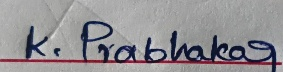 K. Prabhakar